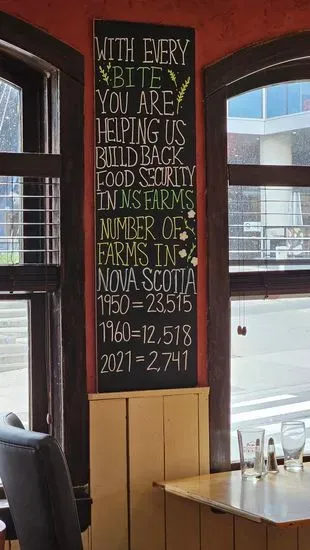 WITH EVERY
BITE
YOU ARE
HELPING US
BUILD BACK
FOOD SECURITY
IN N.S FARMS
NUMBER OF
FARMS IN
NOVA SCOTIA
1950 = 23,515
1960 = 12,518
2021 = 2,741